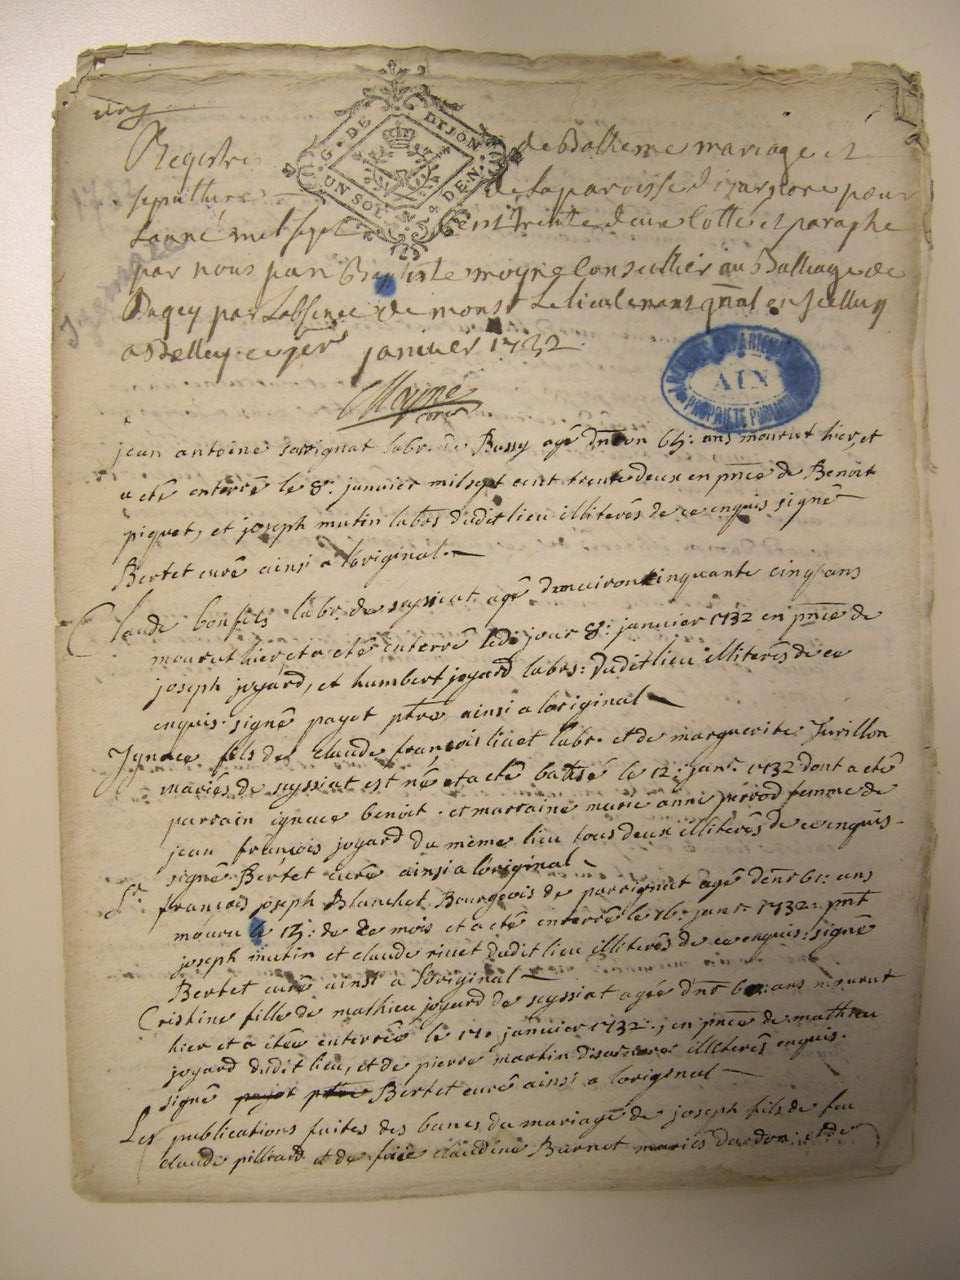 G. DE DIJON
UN SOL 4 DEN.
Registre de Batteme mariage et
sepulture de la paroisse d' pour
Lanné mil sept cent trente deux Cotté et paraphé
par nous Jean Baptiste moyne Conseiller au Balliage de
Bugey par Labsence de mons. Le lieutenant gñal
a Belley ce janvier 1732
Moyne
ARCHIVES DÉPARTEMENTALES
AIN
PROPRIÉTÉ PUBLIQUE
jean antoine labr. de Bussy agé d'environ ans mourut hier et
a eté enterré le 8e. janvier mil sept cent trente deux en pñce de Benoit
piquet, et joseph mutin labrs dudit lieu illiterés de ce enquis signé
Bertet curé ainsi a l'original.
Claude bonfils labr. de seyssiat agé d'environ cinquante cinq ans
mourut hier, et a eté enterré led. jour 8e. janvier 1732 en pñce de
joseph joyard, et humbert joyard labrs: dudit lieu illiterés de ce
enquis. signé payet ptre ainsi a l'original
Ignace fils de claude françois livet labr. et de marguerite Jurillon
mariés de seyssiat est né et a eté batisé le 12e. janr. 1732 dont a eté
parrain ignace benoit. et marraine marie anne périod femme de
jean françois joyard du même lieu tous deux illiterés de ce enquis.
signé Bertet curé ainsi a l'original
Sr. françois joseph Blanchet Bourgeois de parrignat agé d'env. ans
mouru le de ce mois et a eté enterré le 16e. janr. 1732. pnt
joseph mutin et claude rivet dudit lieu illiterés de ce enquis: signé
Bertet curé ainsi a l'original
Cristine fille de mathieu joyard de seyssiat agée d'env. ans mourut
hier et a eteé enterrée le janvier 1732. en pñce de mathieu
joyard dudit lieu, et de pierre martin illiterés enquis.
signé payet ptre Bertet curé ainsi a l'original
Les publications faites des bancs du mariage de joseph fils de feu
claude pilliard et de claudine Barnet mariés et de